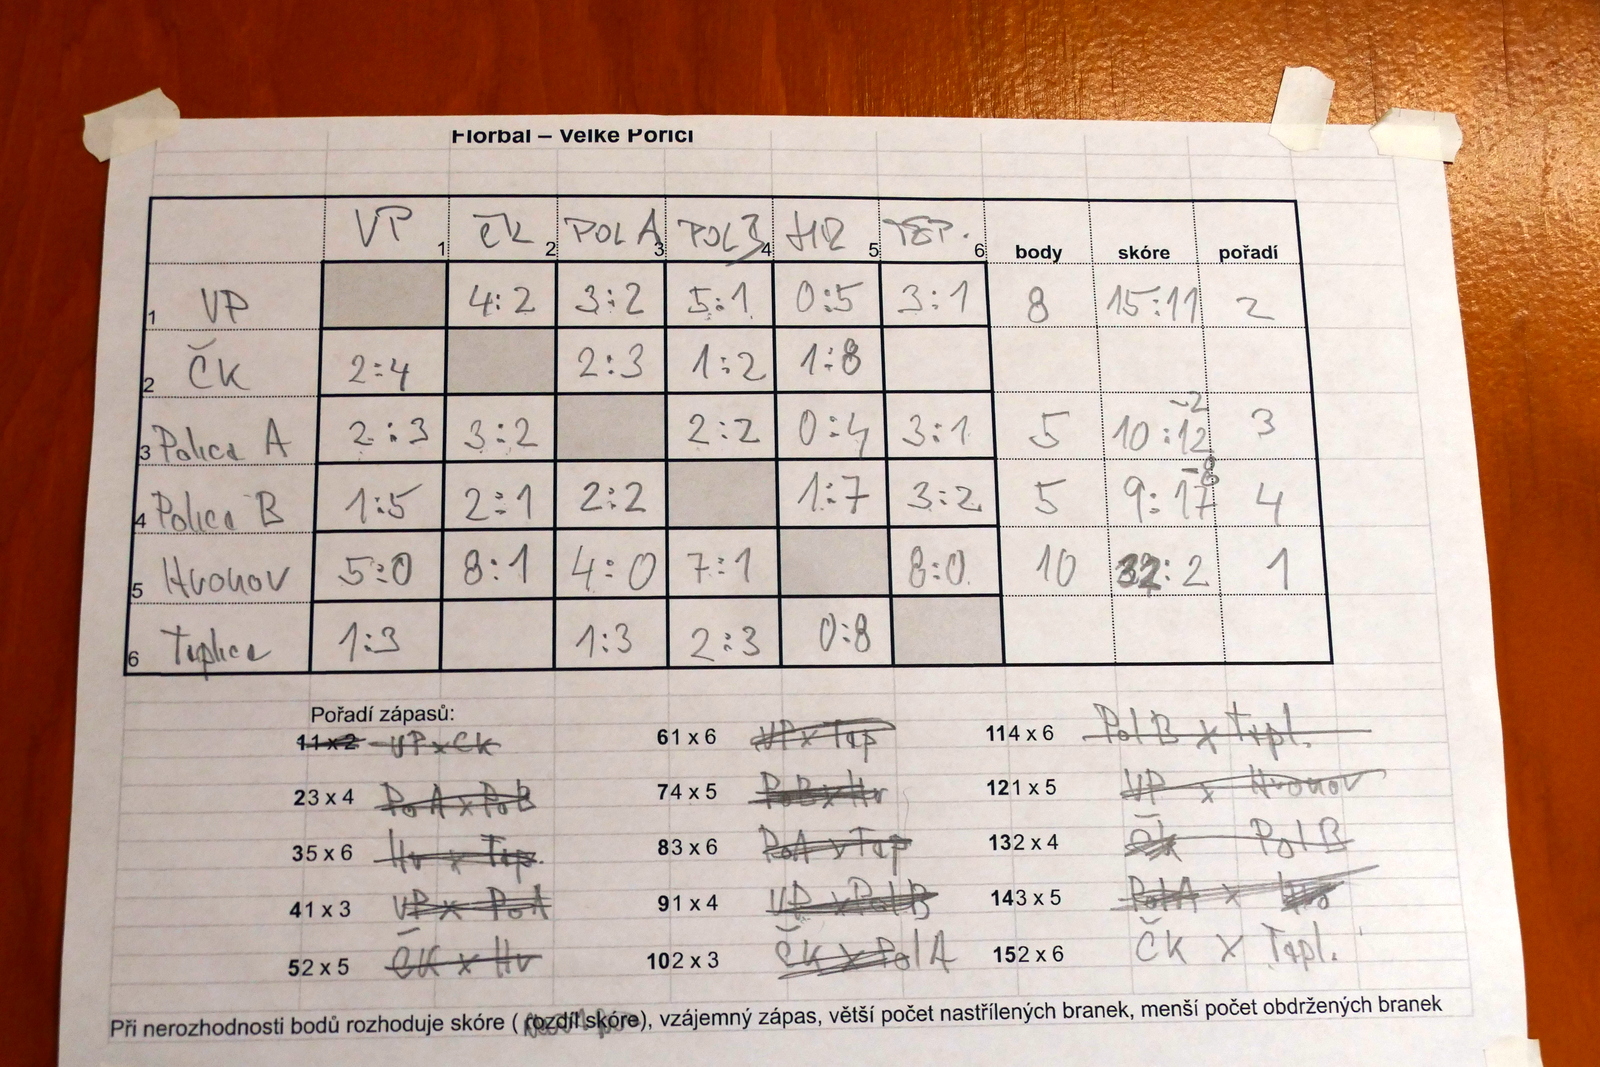 Florbal – Velké Poříčí
VP 1 ČK 2 POL A 3 POL B 4 HR 5 TEP. 6 body skóre pořadí
1 VP 4:2 3:2 5:1 0:5 3:1 8 15:11 2
2 ČK 2:4 2:3 1:2 1:8
3 Police A 2:3 3:2 2:2 0:4 3:1 5 10:12 -2 3
4 Police B 1:5 2:1 2:2 1:7 3:2 5 9:17 -8 4
5 Hronov 5:0 8:1 4:0 7:1 8:0 10 32:2 1
6 Teplice 1:3 1:3 2:3 0:8
Pořadí zápasů:
11 x 2 VP x ČK 61 x 6 VP x Tep 114 x 6 Pol B x Tepl.
23 x 4 Po A x Po B 74 x 5 Po B x Hr 121 x 5 VP x Hronov
35 x 6 Hr x Tep. 83 x 6 Po A x Tep 132 x 4 ČK Pol B
41 x 3 VP x Po A 91 x 4 VP x Pol B 143 x 5 Pol A x Hr
52 x 5 ČK x Hr 102 x 3 ČK x Pol A 152 x 6 ČK x Tepl.
Při nerozhodnosti bodů rozhoduje skóre ( rozdíl skóre), vzájemný zápas, větší počet nastřílených branek, menší počet obdržených branek